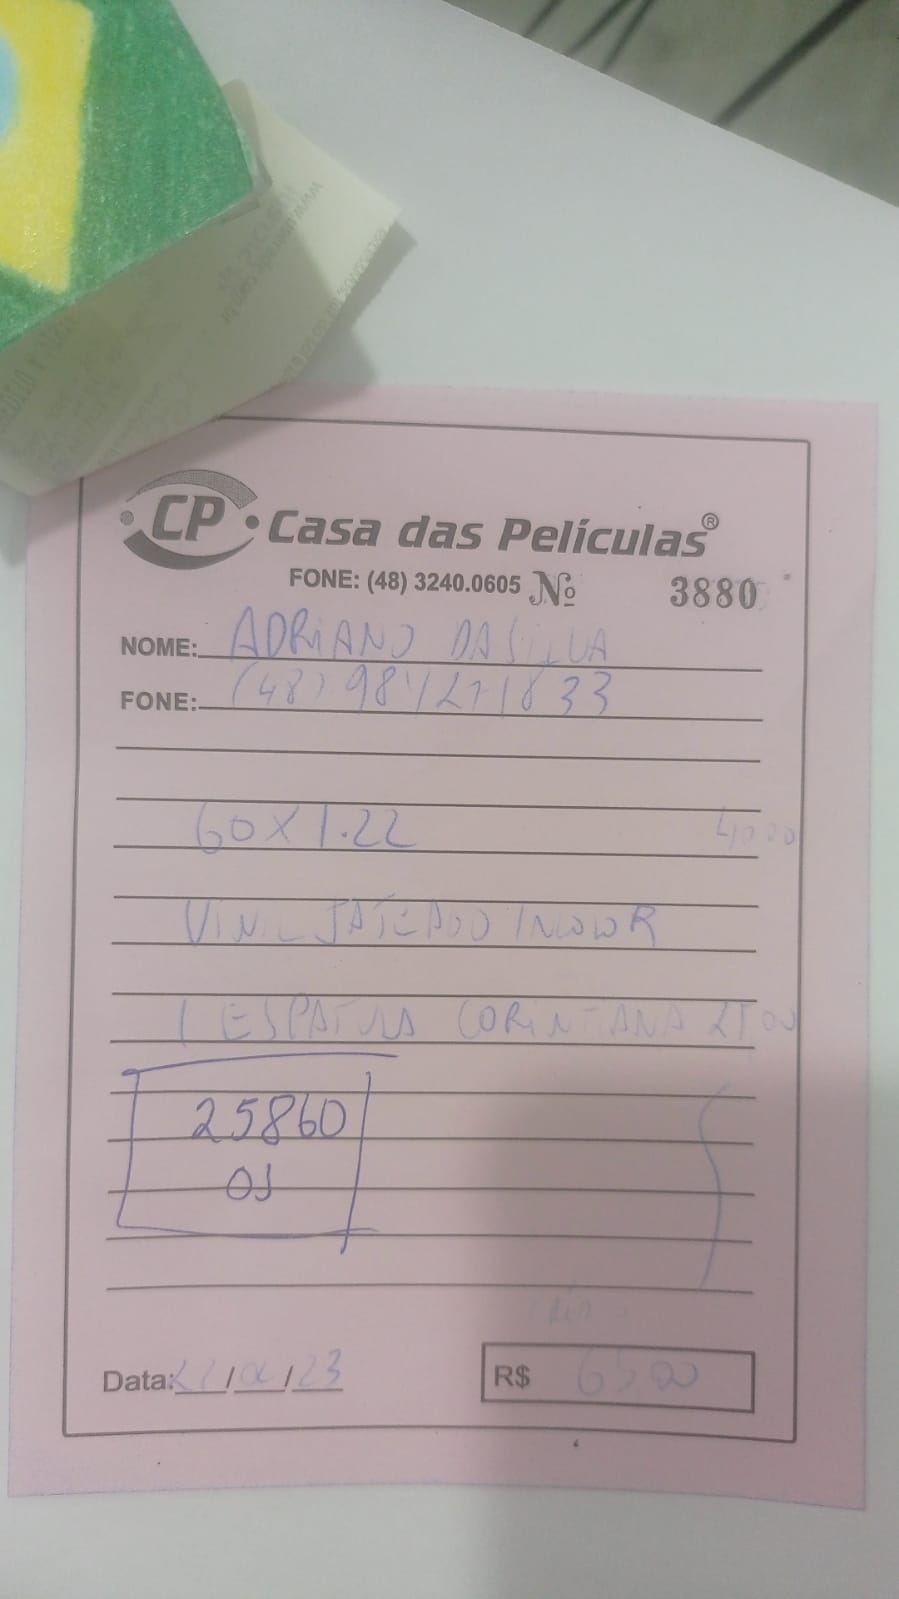 CP Casa das Películas®
FONE: (48) 3240.0605 Nº 3880
NOME: ADRIANO DA SILVA
FONE: (48) 984271833
60 X 1.22 40,00
VINIL JATEADO INDOOR
1 ESPATULA CORINTIANA 25,00
25860
OS
Data: / / 23
R$ 65,00